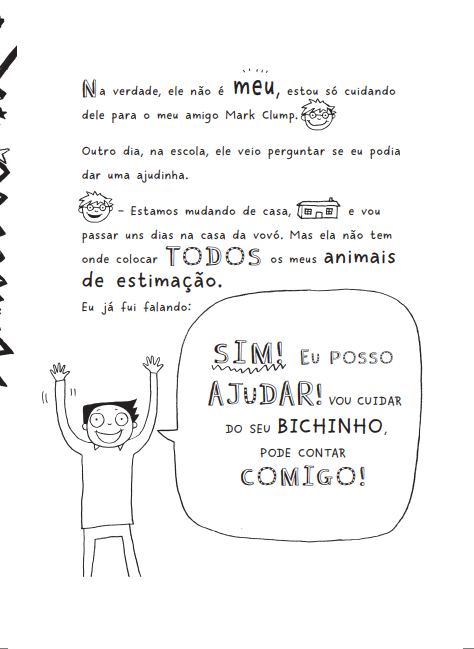 Na verdade, ele não é meu, estou só cuidando
dele para o meu amigo Mark Clump.
Outro dia, na escola, ele veio perguntar se eu podia
dar uma ajudinha.
– Estamos mudando de casa, e vou
passar uns dias na casa da vovó. Mas ela não tem
onde colocar TODOS os meus animais
de estimação.
Eu já fui falando:
SIM! EU POSSO
AJUDAR! VOU CUIDAR
DO SEU BICHINHO,
PODE CONTAR
COMIGO!